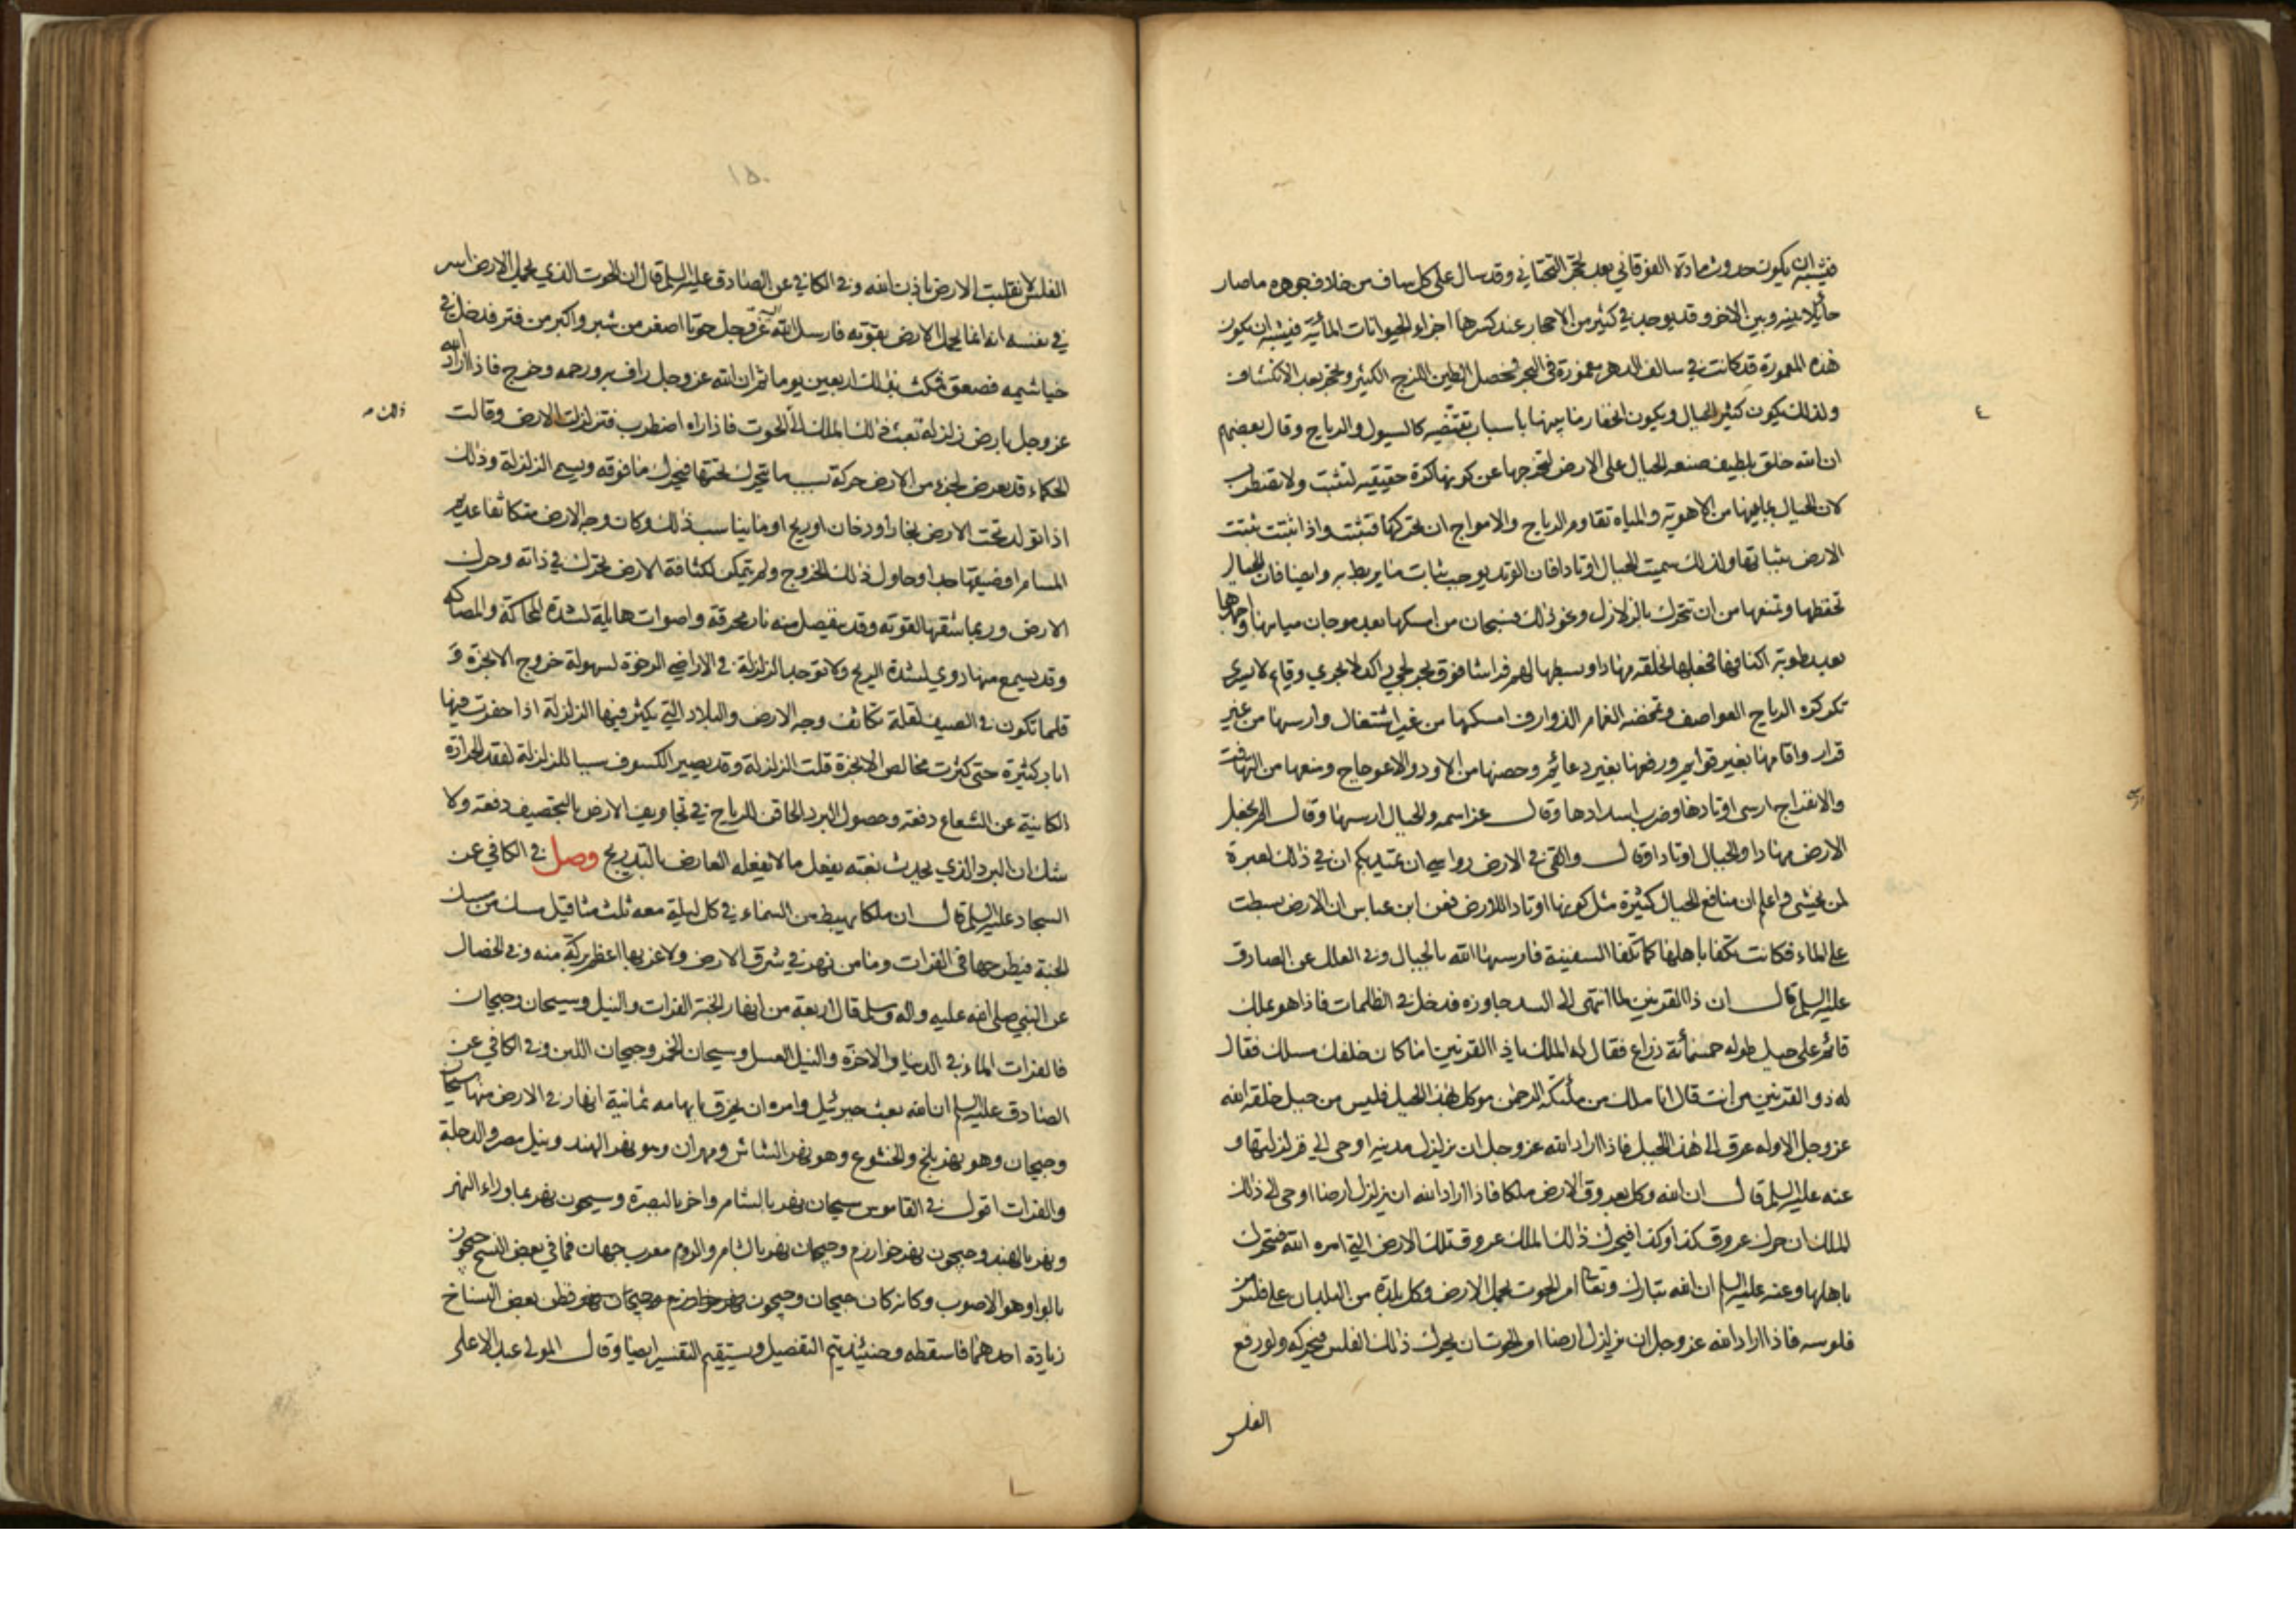 فيشبه ان يكون حدوث مادة الفوقاني بعد تحجر التحتاني وقد سال على كل ساف من خلاف جوهره ما صار
حائلا بينه وبين الاخر وقد يوجد في كثير من الاحجار عند كسرها اجزاء الحيوانات المائية فيشبه ان يكون
هذه المعمورة قد كانت في سالف الدهر مغمورة في البحر فحصل الطين اللزج الكثير وتحجر بعد الانكشاف
ولذلك يكون كثير الجبال ويكون انحفار ما بينها باسباب تقتضيه كالسيول والرياح وقال بعضهم
ان الله خلق بلطيف صنعه الجبال على الارض لتخرجها عن كونها كرة حقيقيه لتثبت ولا تضطرب
لان الجبال بما بينها من الاهوية والمياه تقاوم الرياح والامواج ان تحركها فتثبت واذا ثبتت ثبتت
الارض بثباتها ولذلك سميت الجبال اوتادا فان الوتد يوجب ثبات ما يربط به وايضا فان الجبال
تحفظها وتمنعها من ان تتحرك بالزلازل ونحو ذلك فسبحان من امسكها بعد موجان مياهها واجمدها
بعد رطوبة اكنافها فجعلها لخلقه مهادا وبسطها لهم فراشا فوق بحر لجي راكد لا يجري وقايم لا يسري
تكركره الرياح العواصف وتمخضه الغمام الذوارف امسكها من غير اشتغال وارسيها من غير
قرار واقامها بغير قوايم ورفعها بغير دعائم وحصنها من الاود والاعوجاج ومنعها من التهافت
والانفراج ارسى اوتادها وضرب اسدادها وقال عز اسمه والجبال ارسيها وقال الم نجعل
الارض مهادا والجبال اوتادا وقال والقى في الارض رواسي ان تميد بكم ان في ذلك لعبرة
لمن يخشى واعلم ان منافع الجبال كثيرة مثل كونها اوتادا للارض فعن ابن عباس ان الارض بسطت
على الماء فكانت تكفا باهلها كما تكفا السفينة فارسيها الله بالجبال وفي العلل عن الصادق
عليه السلم قال ان ذا القرنين لما انتهى الى السد جاوزه فدخل في الظلمات فاذا هو بملك
قائم على جبل طوله خمسمائة ذراع فقال له الملك يا ذا القرنين اما كان خلفك مسلك فقال
له ذو القرنين من انت قال انا ملك من ملئكة الرحمن موكل بهذا الجبل فليس من جبل خلقه الله
عز وجل الا وله عرق الى هذا الجبل فاذا اراد الله عز وجل ان يزلزل مدينة اوحى الي فزلزلتها و
عنه عليه السلم قال ان الله وكل بعروق الارض ملكا فاذا اراد الله ان يزلزل ارضا اوحى الى ذلك
الملك ان حرك عروق كذا وكذا فيحرك ذلك الملك عروق تلك الارض التي امره الله فتحرك
باهلها وعنه عليه السلم ان الله تبارك وتعالى امر الحوت بحمل الارض وكل بلدة من البلدان على فلس من
فلوسه فاذا اراد الله عز وجل ان يزلزل ارضا امر الحوت ان يحرك ذلك الفلس فيحركه ولو رفع
الفلس
١٥٠
الفلس لانقلبت الارض باذن الله وفي الكافي عن الصادق عليه السلم قال ان الحوت الذي يحمل الارض اسر
في نفسه انه انما يحمل الارض بقوته فارسل الله عز وجل اليه حوتا اصغر من شبر واكبر من فتر فدخل في
خياشيمه فصعق فمكث بذلك اربعين يوما ثم ان الله عز وجل راف به ورحمه وخرج فاذا اراد الله
عز وجل بارض زلزلة بعث ذلك الملك الى الحوت فاذا راه اضطرب فتزلزلت الارض وقالت
ذلك
الحكماء قد يعرض لجزء من الارض حركة بسبب ما يتحرك تحتها فيحرك ما فوقه ويسمى الزلزلة وذلك
اذا تولد تحت الارض بخار او دخان او ريح او ما يناسب ذلك وكان وجه الارض متكاثفا عديم
المسام او ضيقها جدا وحاول ذلك الخروج ولم يتمكن لكثافة الارض تحرك في ذاته وحرك
الارض وربما شقها لقوته وقد ينفصل منه نار محرقة واصوات هايلة لشدة المحاكة والمصاكة
وقد يسمع منها دوي لشدة الريح ولا توجد الزلزلة في الاراضي الرخوة لسهولة خروج الابخرة و
قلما تكون في الصيف لقلة تكاثف وجه الارض والبلاد التي يكثر فيها الزلزلة اذا حفرت فيها
ابار كثيرة حتى كثرت مخالص الابخرة قلت الزلزلة وقد يصير الكسوف سببا للزلزلة لفقد الحرارة
الكاينة عن الشعاع دفعة وحصول البرد الحاقن للرياح في تجاويف الارض بالتجصيف دفعة ولا
شك ان البرد الذي يحدث بغتة يفعل ما لا يفعله العارض بالتدريج وصل في الكافي عن
السجاد عليه السلم قال ان ملكا يهبط من السماء في كل ليلة معه ثلث مثاقيل مسك من مسك
الجنة فيطرحها في الفرات وما من نهر في شرق الارض ولا غربها اعظم بركة منه وفي الخصال
عن النبي صلى الله عليه واله وسلم قال اربعة من انهار الجنة الفرات والنيل وسيحان وجيحان
فالفرات الماء في الدنيا والاخرة والنيل العسل وسيحان الخمر وجيحان اللبن وفي الكافي عن
الصادق عليه السلم ان الله بعث جبرئيل وامره ان يخرق بابهامه ثمانية انهار في الارض منها سيحان
وجيحان وهو نهر بلخ والخشوع وهو نهر الشاش ومهران وهو نهر الهند ونيل مصر والدجلة
والفرات اقول في القاموس سيحان نهر بالشام واخر بالبصرة وسيحون نهر بما وراء النهر
ونهر بالهند وجيحون نهر خوارزم وجيحان نهر بالشام والروم معرب جهان فما في بعض النسخ جيحون
بالواو هو الاصوب وكانه كان جيحان وجيحون فظن بعض النساخ
زيادة احدهما فاسقطه وحينئذ يتم التفصيل ويستقيم التفسير ايضا وقال المولى عبد الاعلى